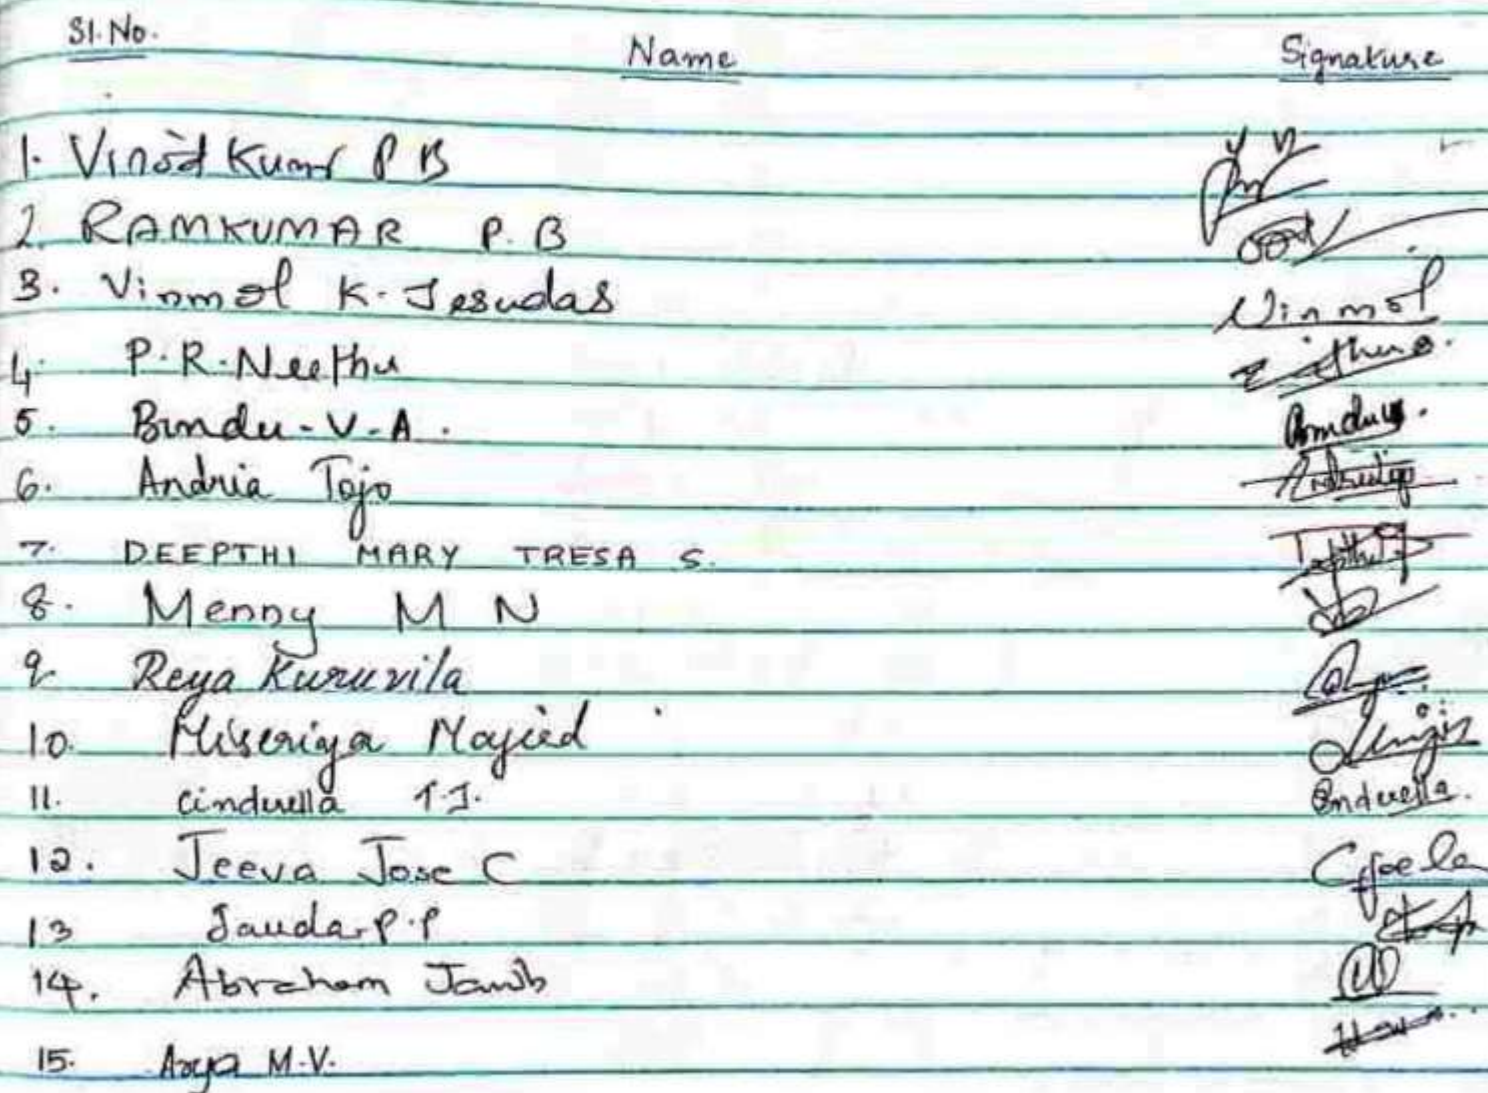 Sl. No. Name Signature
1. Vinod Kumar P B
2. RAMKUMAR P. B
3. Vinmol K. Jesudas Vinmol
4. P. R. Neethu
5. Bindu - V. A. Bindu.
6. Andria Tojo
7. DEEPTHI MARY TRESA S.
8. Menny M N
9. Reya Kuruvila
10. Miseriya Majeed
11. Cinderella T.J. Cinderella.
12. Jeeva Jose C
13 Sauda. P. P
14. Abraham Jacob
15. Arya M.V.